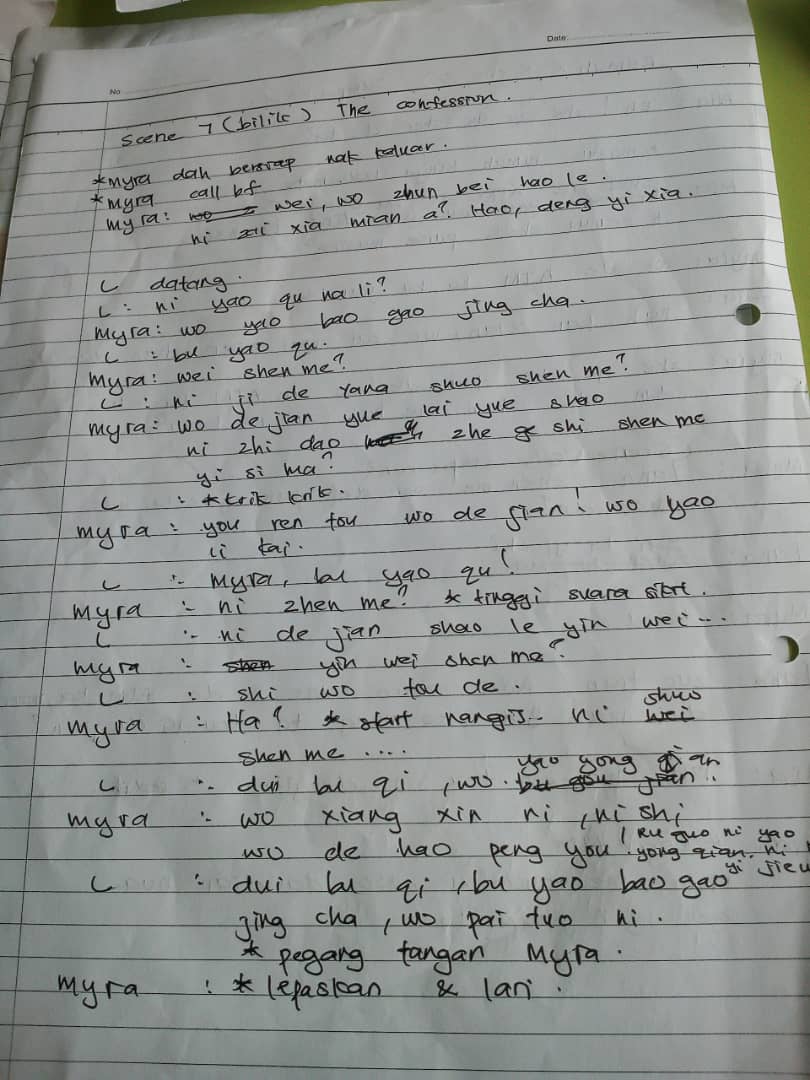 Date:
No
Scene 7 (bilik) The confession.
*Myra dah bersiap nak keluar.
*Myra call bf
Myra: wei, wo zhun bei hao le.
ni zai xia mian a? Hao, deng yi xia.
L datang.
L : ni yao qu na li?
Myra: wo yao bao gao jing cha.
L : bu yao qu.
Myra: wei shen me?
L : ni ji de Yang shuo shen me?
Myra: wo de jian yue lai yue shao
ni zhi dao zhe shi shen me
yi si ma?
L : *krik krik.
Myra : you ren tou wo de jian! wo yao
li kai.
L : Myra, bu yao qu!
Myra : ni zhen me? * tinggi suara sikit.
L : ni de jian shao le yin wei...
Myra : yin wei shen me?
L : shi wo tou de.
Myra : Ha? * start nangis.. ni shuo
shen me ....
L : dui bu qi, wo yao yong qian.
Myra : wo xiang xin ni, ni shi
wo de hao peng you, Ru guo ni yao
yong qian, ni
L : dui bu qi, bu yao bao gao
jing cha, wo pai tuo ni.
* pegang tangan Myra.
Myra : * lepaskan & lari.